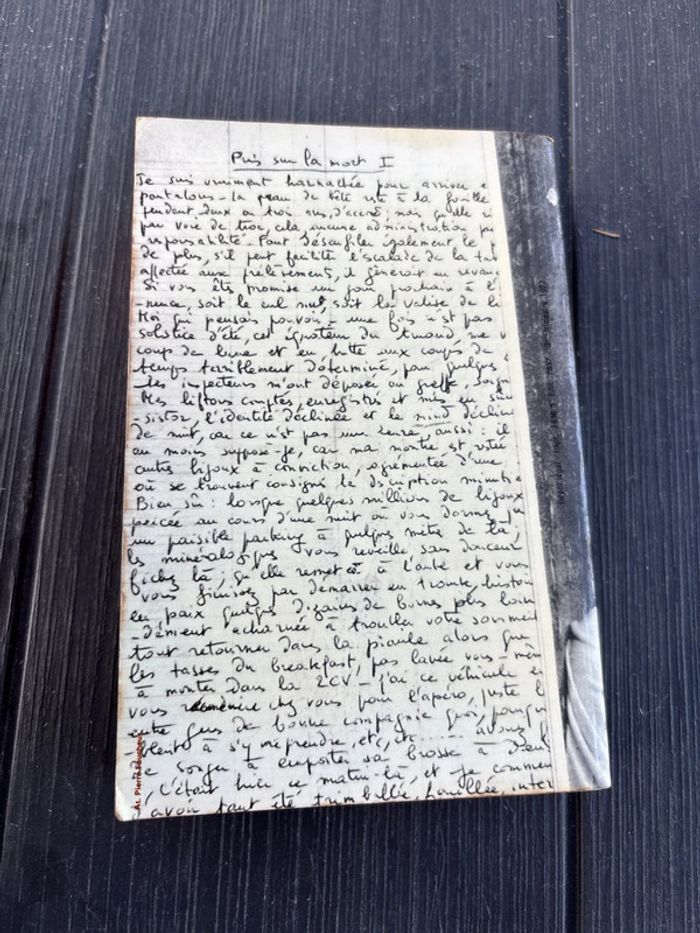 Puis sur la mort I
Je suis vraiment harnachée pour arriver e
pantalons - la peau de bête reste à la fouille
pendant deux ou trois ans, d'accord ; mais qu'elle
par voie de troc, cela, aucune administration
responsabilité. Faut désenfler également le
de plus, s'il peut faciliter l'escalade de la
affectée aux prélèvements, il gênerait en revan
Si vous êtes promise un jour prochain à l'é
-nence, soit le cul nu, soit la valise de li
Moi qui pensais pouvoir - une fois n'est pas
solstice d'été, cet
coup de lune et en butte aux coups de
temps terriblement déterminé, par quelques
Les inspecteurs m'ont déposée au greffe,
Mes liftons comptés, enregistrés et mis en
-sistor, l'identité déclinée et le mind décliné
de nuit, car ce n'est pas une heure, aussi : il
au moins suppose-je, car ma montre est restée
autres bijoux à conviction, agrémentée d'une
où se trouvent consigné la description minutie
Bien sûr : lorsque quelques millions de bijoux
au cours d'une nuit où vous dormez
un paisible parking à quelques mètres de là,
les minéralogiques vous réveille, sans douceur
fichez là, qu'elle remet à l'aube et vous
vous finissez par démarrer en trombe, histoi
en paix quelques dizaines de bornes plus loin
-dément acharnée à troubler votre sommeil
tout retourner dans la piaule alors que
les tasses du breakfast, pas lavée vous-mêm
à monter dans la 2CV - j'ai ce véhicule e
vous ramènerai chez vous pour l'apéro, juste l
entre gens de bonne compagnie quoi, pourqu
-blent à s'y méprendre, etc, etc ..... avouez
de songer à emporter sa brosse à den
, c'était hier ce matin-là, et je commen
d'avoir tant été trimballée, houillée, inter
At. Pierre Faucheux